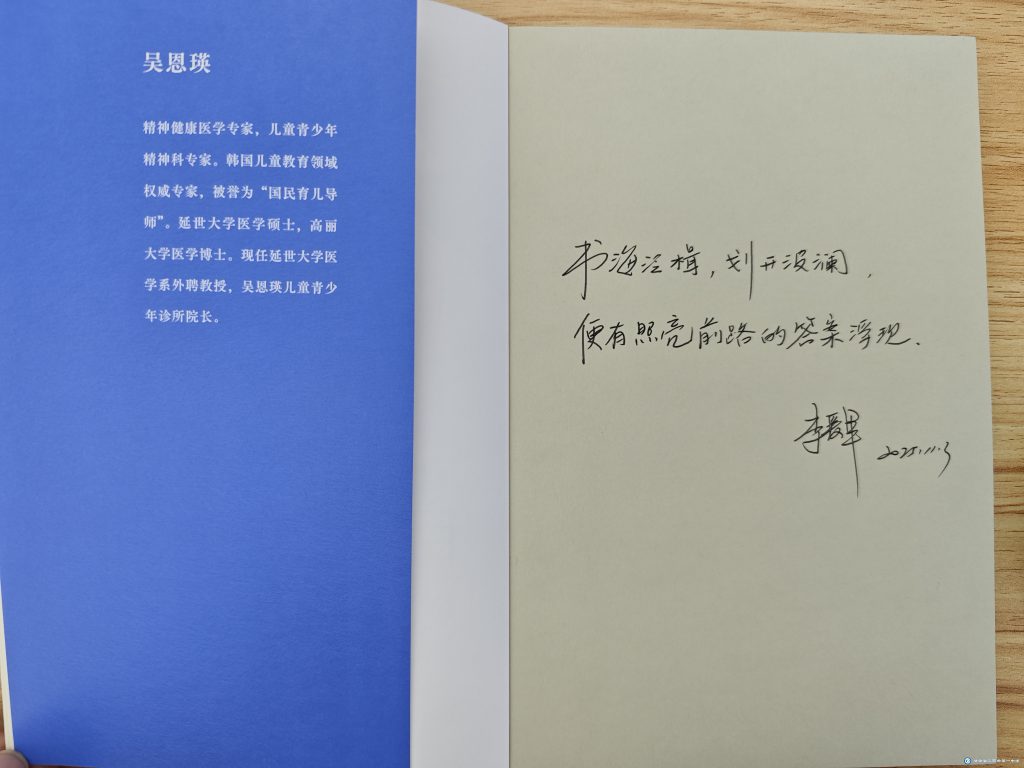 吴恩瑛
精神健康医学专家，儿童青少年
精神科专家。韩国儿童教育领域
权威专家，被誉为“国民育儿导
师”。延世大学医学硕士，高丽
大学医学博士。现任延世大学医
学系外聘教授，吴恩瑛儿童青少
年诊所院长。
书海泛楫，划开波澜，
便有照亮前路的答案浮现.
李 2025.11.3